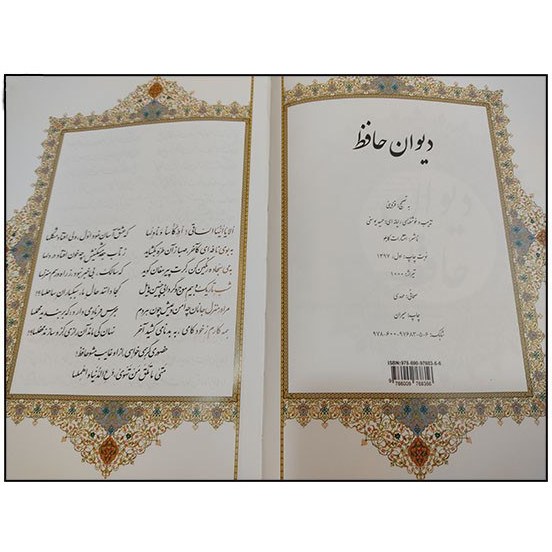 دیوان حافظ
به تصحیح
نوبت چاپ: اول، ۱۳۹۷
تیراژ: ۱۰۰۰
صحافی: مهدی
چاپ: ایران
شابک: ۹۷۸-۶۰۰-۹۷۶۸۳-۵-۶
ISBN: 978-600-97683-5-6
الا یا ایها الساقی، أدر کأساً و ناولها
که عشق آسان نمود اول، ولی افتاد مشکلها
به بوی نافه‌ای کآخر، صبا زان طره بگشاید
ز تاب جعد مشکینش، چه خون افتاد در دلها
به می سجاده رنگین کن، گرت پیر مغان گوید
که سالک، بی‌خبر نبود، ز راه و رسم منزلها
شب تاریک و بیم موج و گردابی چنین هایل
کجا دانند حال ما، سبکباران ساحلها؟!
مرا در منزل جانان، چه امن عیش، چون هر دم
جرس فریاد می‌دارد، که بربندید محملها
همه کارم ز خود کامی، به بدنامی کشید آخر
نهان کی ماند آن رازی، کزو سازند محفلها؟!
حضوری گر همی خواهی، ازو غایب مشو حافظ!
متی ما تلق من تهوی، دع الدنیا و اهملها